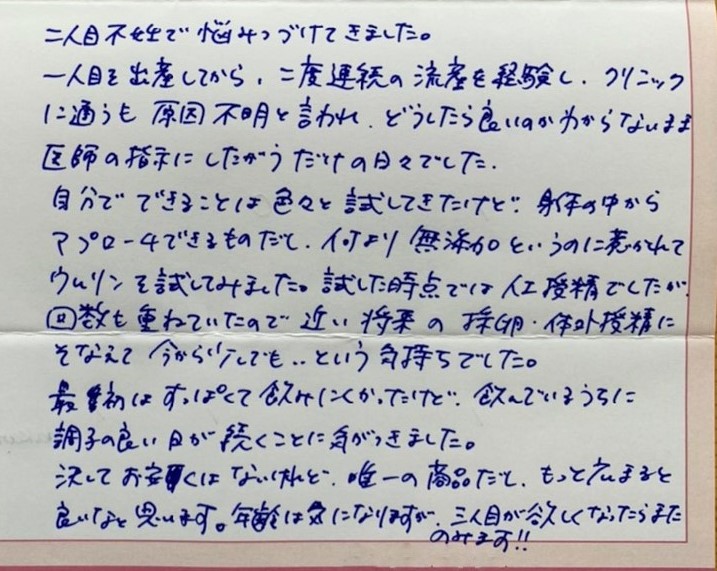 二人目不妊で悩みつづけてきました。
一人目を出産してから、二度連続の流産を経験し、クリニック
に通うも原因不明と言われ、どうしたら良いのかわからないまま
医師の指示にしたがうだけの日々でした。
自分でできることは色々と試してきたけど、身体の中から
アプローチできるものだし、何より無添加というのに惹かれて
ウムリンを試してみました。試した時点では人工授精でしたが、
回数も重ねていたので近い将来の採卵・体外授精に
そなえて今から少しでも..という気持ちでした。
最初はすっぱくて飲みにくかったけど、飲んでいるうちに
調子の良い日が続くことに気がつきました。
決してお安くはないけれど、唯一の商品だし、もっと広まると
良いなと思います。年齢は気になりますが、三人目が欲しくなったらまた
のみます!!